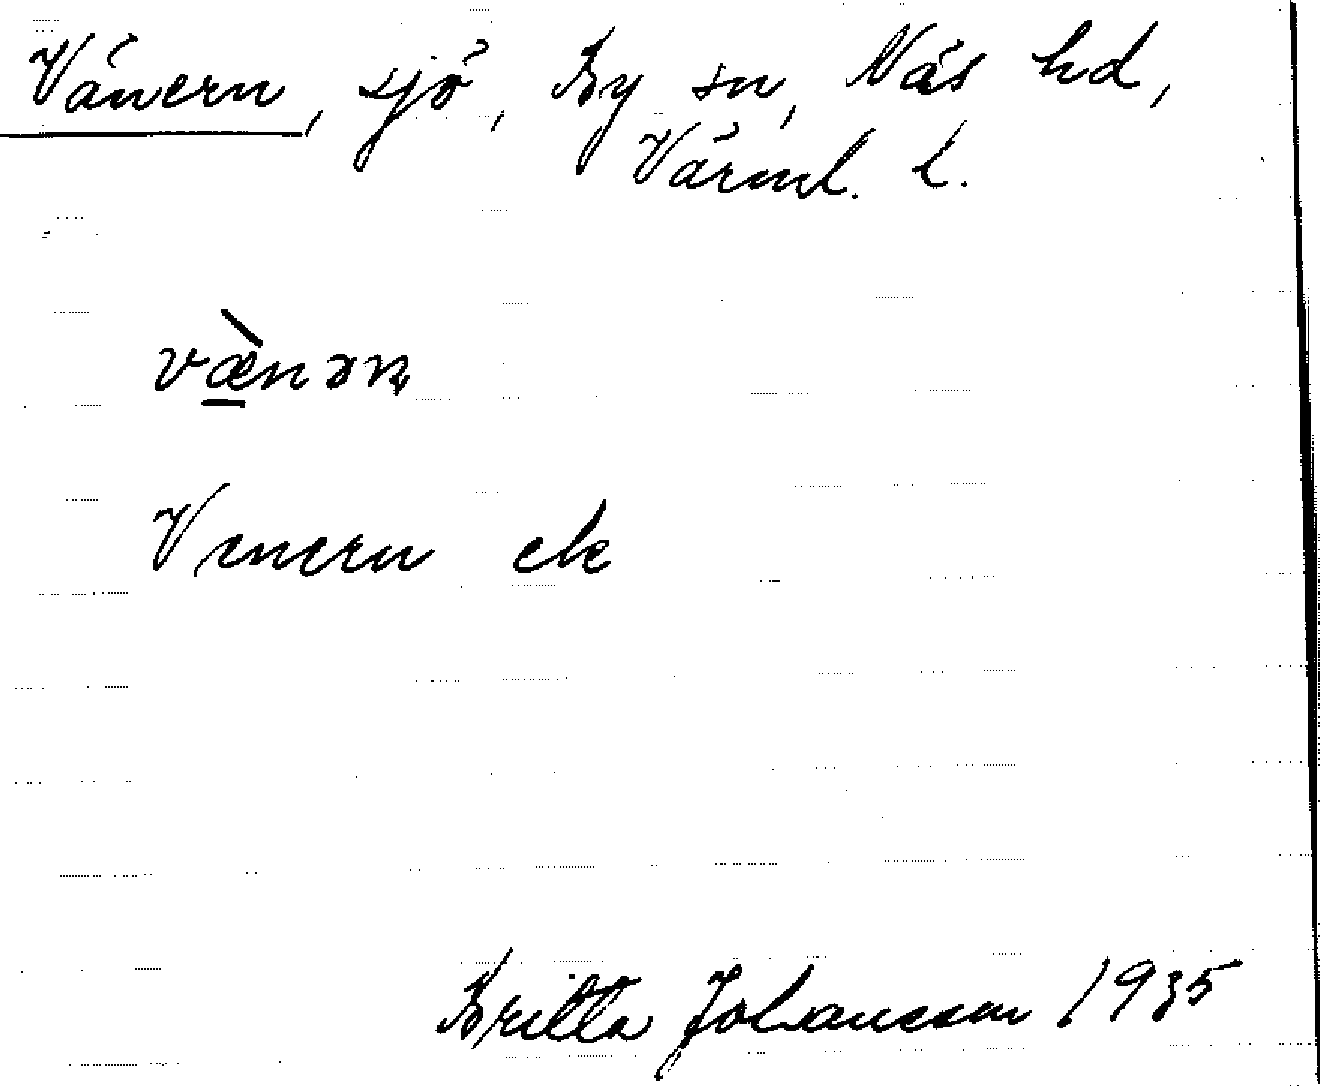 Vänern, sjö, By sn, Näs hd,
Värml. l.
væ̠̀nəɳ
Venern ek
Britta Johansson 1935